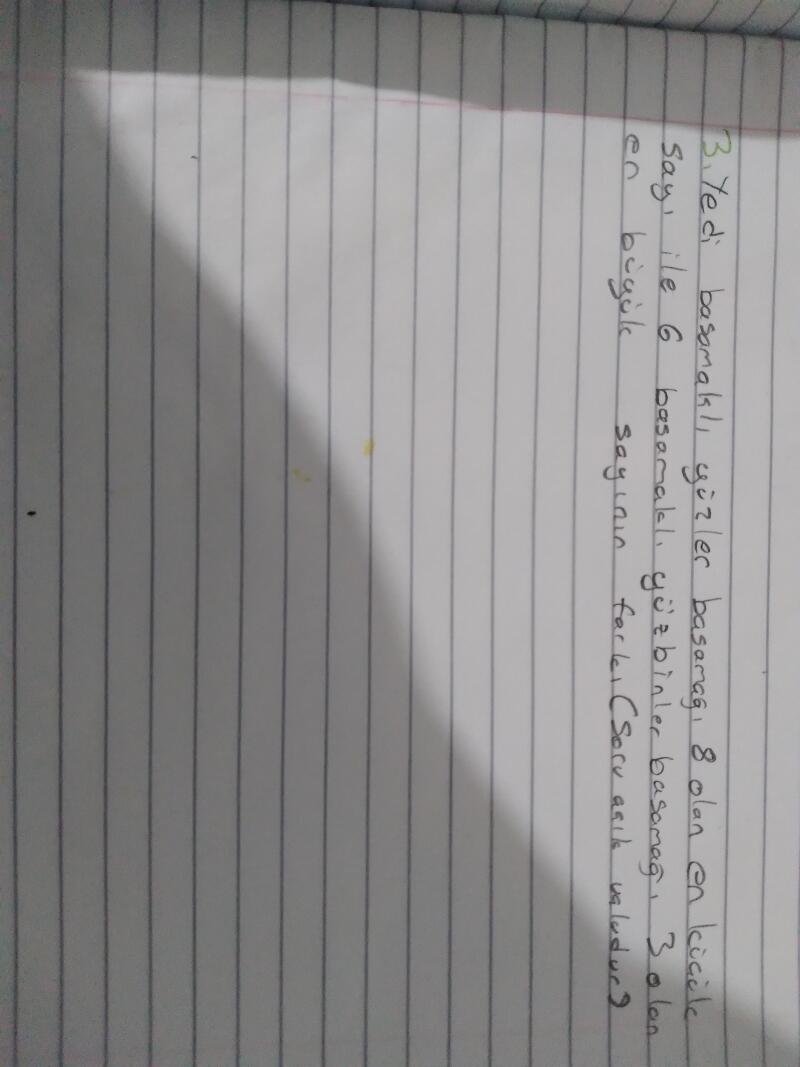 3. Yedi basamaklı, yüzler basamağı 8 olan en küçük
sayı ile 6 basamaklı, yüzbinler basamağı 3 olan
en büyük sayının farkı (Soru açık uçludur)